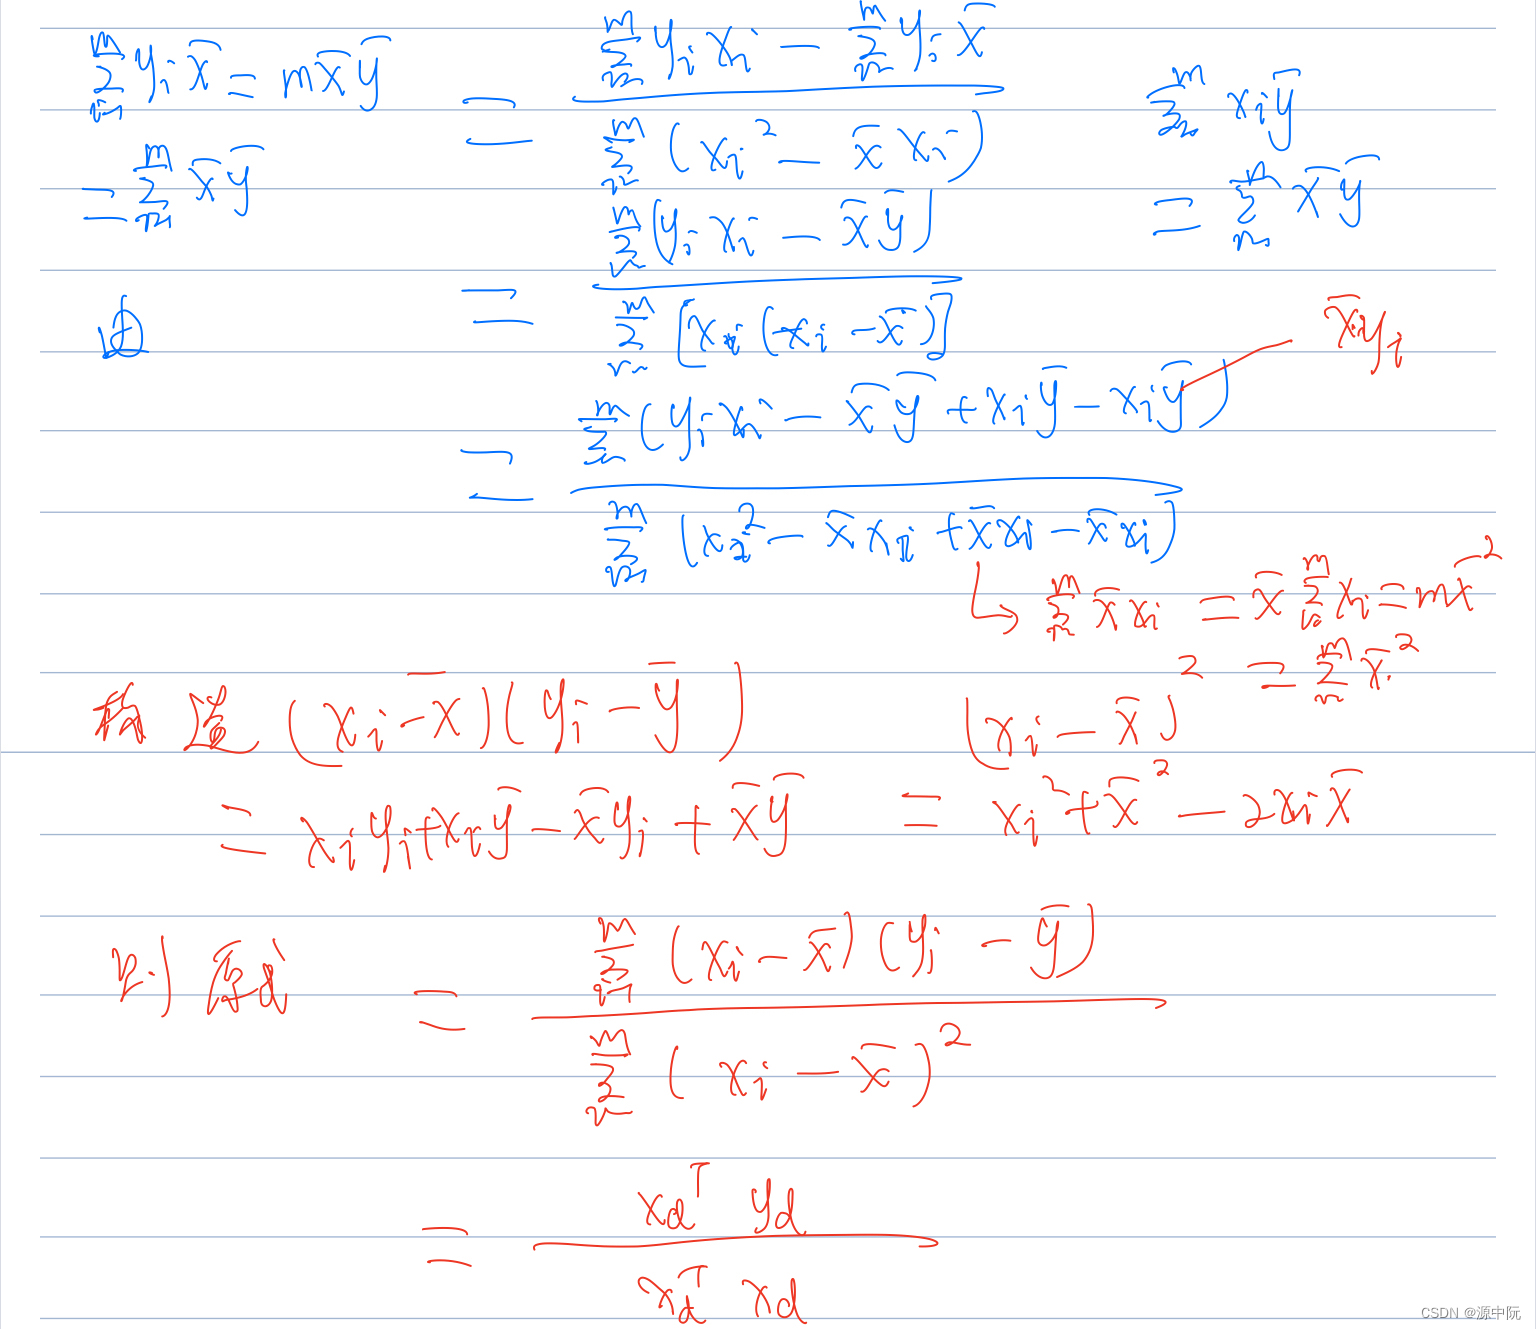 ∑_{i=1}^{m} y_i x̄ = m x̄ ȳ
= ∑_{i=1}^{m} x̄ ȳ
由
= (∑_{i=1}^{m} y_i x_i − ∑_{i=1}^{m} y_i x̄) / (∑_{i=1}^{m} (x_i² − x̄ x_i))
= (∑_{i=1}^{m} (y_i x_i − x̄ ȳ)) / (∑_{i=1}^{m} [x_i (x_i − x̄)])
= (∑_{i=1}^{m} (y_i x_i − x̄ ȳ + x_i ȳ − x_i ȳ)) / (∑_{i=1}^{m} (x_i² − x̄ x_i + x̄ x_i − x̄ x_i))
∑_{i=1}^{m} x_i ȳ
= ∑_{i=1}^{m} x̄ ȳ
x̄ y_i
↳ ∑_{i=1}^{m} x̄ x_i = x̄ ∑_{i=1}^{m} x_i = m x̄²
= ∑_{i=1}^{m} x̄²
构造 (x_i − x̄)(y_i − ȳ)
= x_i y_i + x_i ȳ − x̄ y_i + x̄ ȳ
(x_i − x̄)²
= x_i² + x̄² − 2x_i x̄
则原式 = (∑_{i=1}^{m} (x_i − x̄)(y_i − ȳ)) / (∑_{i=1}^{m} (x_i − x̄)²)
= (x_d^T y_d) / (x_d^T x_d)
CSDN @源中阮